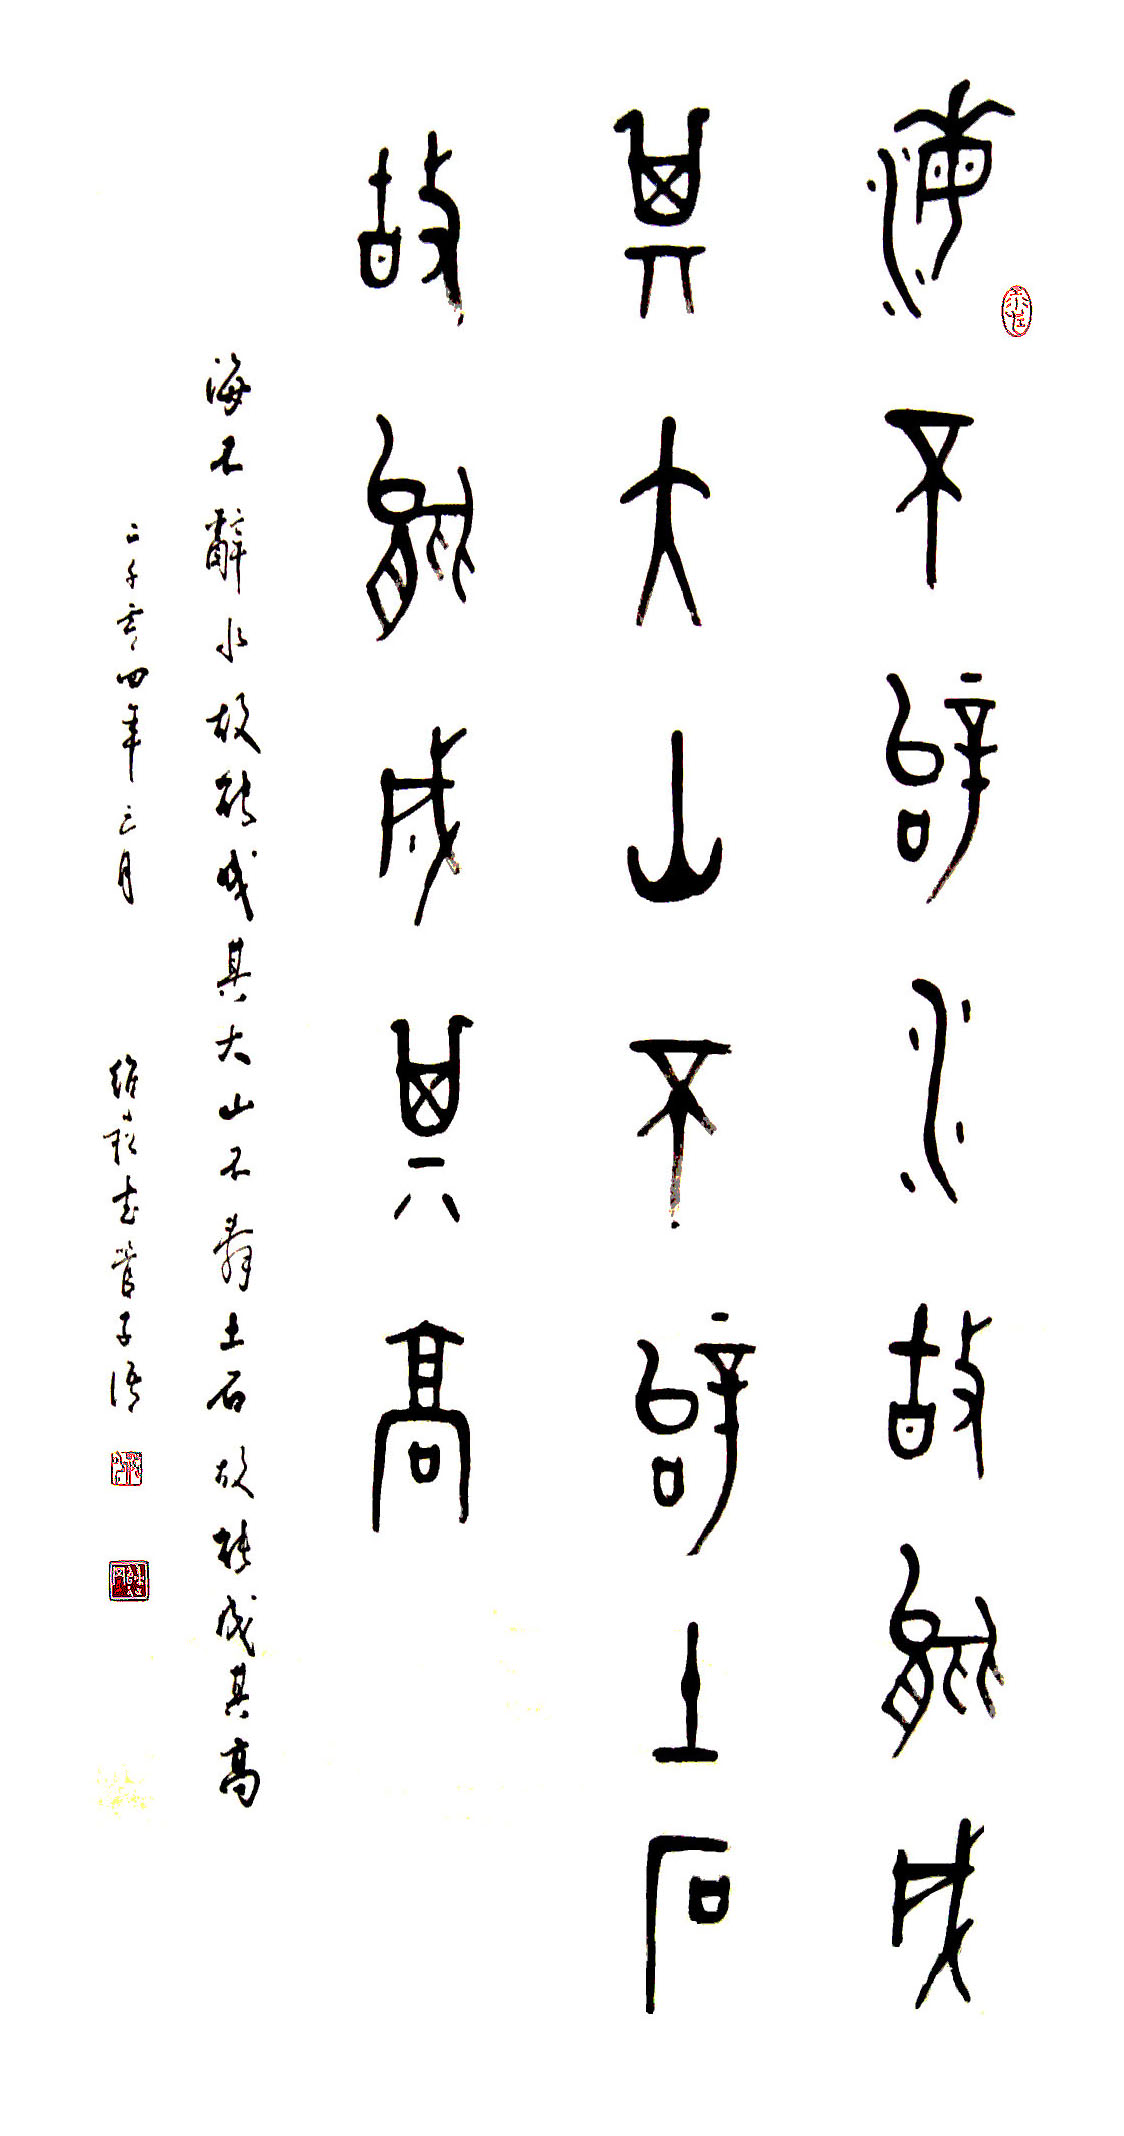 海不辭水故能成
其大山不辭土石
故能成其高
海不辭水故能成其大山不辭土石故能成其高
二千零四年三月 書管子語